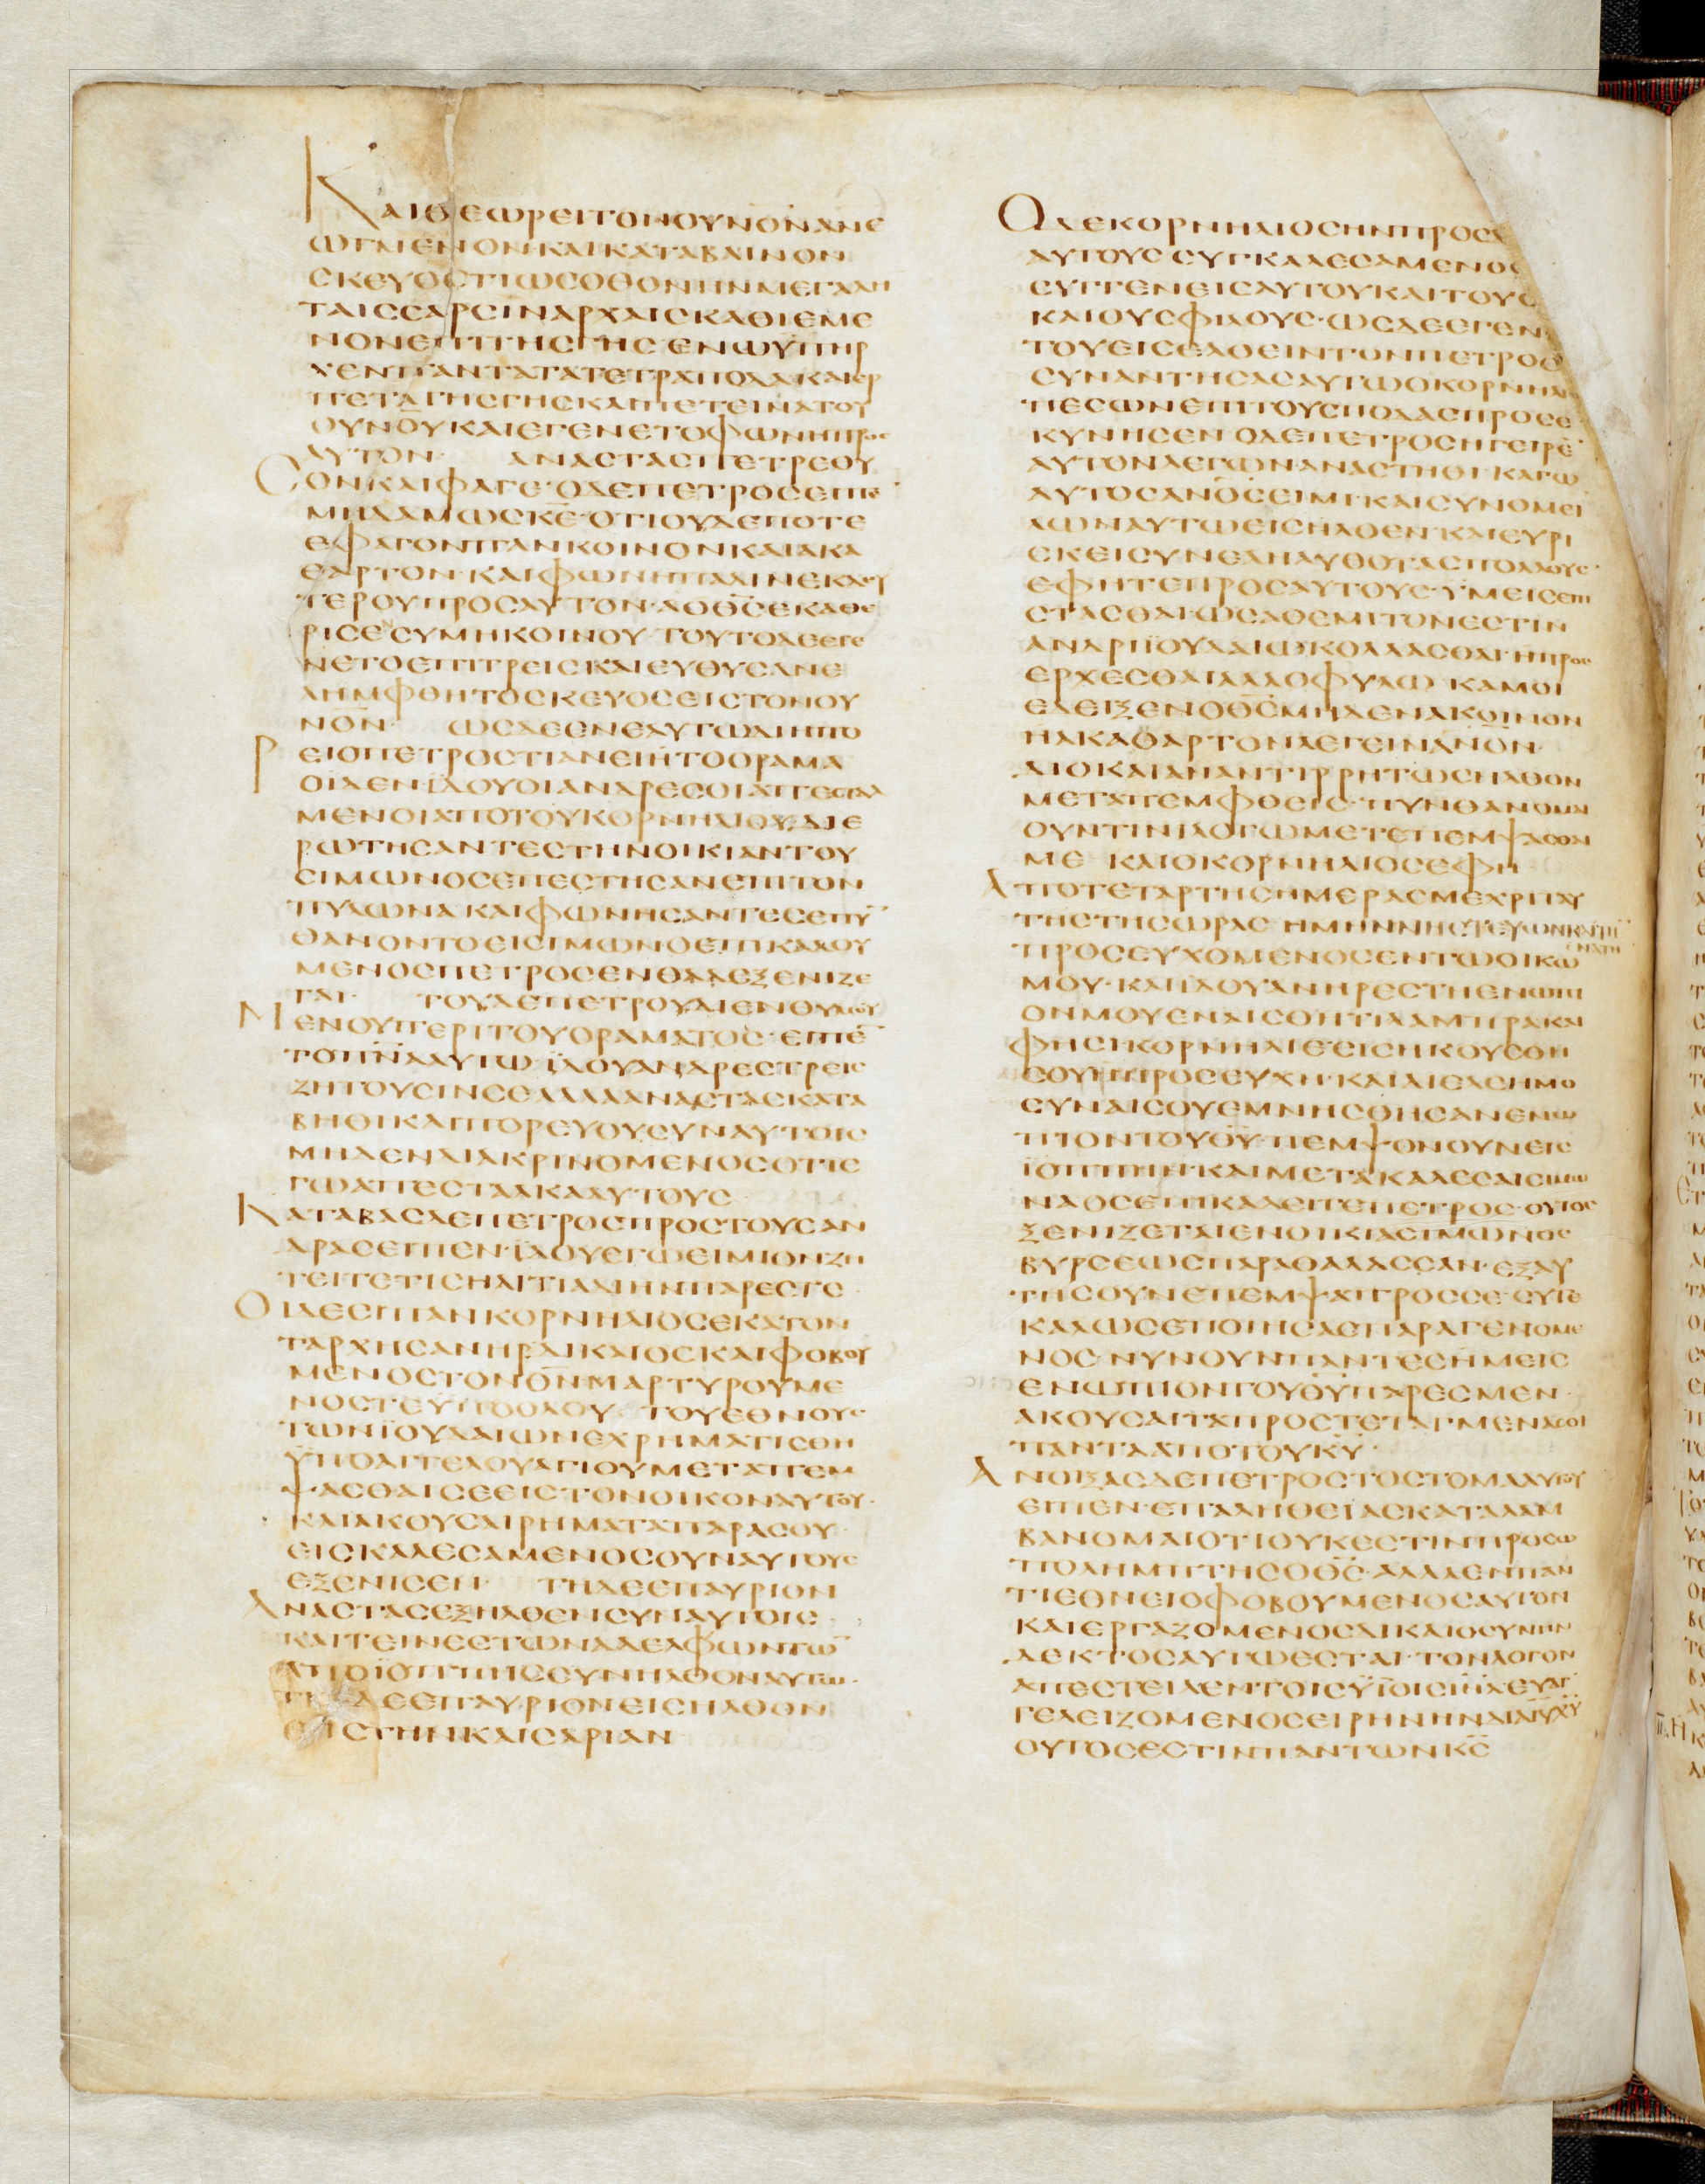 ΚΑΙΘΕΩΡΕΙΤΟΝΟΥΝΟΝΑΝΕ
ΩΓΜΕΝΟΝ·ΚΑΙΚΑΤΑΒΑΙΝΟΝ
ΣΚΕΥΟΣΤΙΩΣΟΘΟΝΗΝΜΕΓΑΛΗ
ΤΑΙΣΣΑΡΣΙΝΑΡΧΑΙΣΚΑΘΙΕΜΕ
ΝΟΝΕΠΙΤΗΣΓΗΣ·ΕΝΩΫΠΗΡ
ΧΕΝΠΑΝΤΑΤΑΤΕΤΡΑΠΟΔΑΚΑΙΕΡ
ΠΕΤΑΤΗΣΓΗΣΚΑΙΠΕΤΕΙΝΑΤΟΥ
ΟΥΝΟΥΚΑΙΕΓΕΝΕΤΟΦΩΝΗΠΡΟΣ
ΑΥΤΟΝ· ΑΝΑΣΤΑΣΠΕΤΡΕΘΥ
ΣΟΝ·ΚΑΙΦΑΓΕ·ΟΔΕΠΕΤΡΟΣΕΙΠΕ
ΜΗΔΑΜΩΣΚΕ·ΟΤΙΟΥΔΕΠΟΤΕ
ΕΦΑΓΟΝΠΑΝΚΟΙΝΟΝΚΑΙΑΚΑ
ΘΑΡΤΟΝ·ΚΑΙΦΩΝΗΠΑΛΙΝΕΚΔΕΥ
ΤΕΡΟΥΠΡΟΣΑΥΤΟΝ·ΑΟΘΣΕΚΑΘΕ
ΡΙΣΕΝΣΥΜΗΚΟΙΝΟΥ· ΤΟΥΤΟΔΕΕΓΕ
ΝΕΤΟΕΠΙΤΡΕΙΣΚΑΙΕΥΘΥΣΑΝΕ
ΛΗΜΦΘΗΤΟΣΚΕΥΟΣΕΙΣΤΟΝΟΥ
ΝΟΝ· ΩΣΔΕΕΝΕΑΥΤΩΔΙΗΠΟ
ΡΕΙΟΠΕΤΡΟΣΤΙΑΝΕΙΗΤΟΟΡΑΜΑ
ΟΙΔΕΝ·ΪΔΟΥΟΙΑΝΔΡΕΣΟΙΑΠΕΣΤΑΛ
ΜΕΝΟΙΑΠΟΤΟΥΚΟΡΝΗΛΙΟΥ·ΔΙΕ
ΡΩΤΗΣΑΝΤΕΣΤΗΝΟΙΚΙΑΝΤΟΥ
ΣΙΜΩΝΟΣΕΠΕΣΤΗΣΑΝΕΠΙΤΟΝ
ΠΥΛΩΝΑΚΑΙΦΩΝΗΣΑΝΤΕΣΕΠΥ
ΘΑΝΟΝΤΟΕΙΣΙΜΩΝΟΕΠΙΚΑΛΟΥ
ΜΕΝΟΣΠΕΤΡΟΣΕΝΘΑΔΕΞΕΝΙΖΕ
ΤΑΙ· ΤΟΥΔΕΠΕΤΡΟΥΔΙΕΝΘΥΜΟΥ
ΜΕΝΟΥΠΕΡΙΤΟΥΟΡΑΜΑΤΟΣ·ΕΙΠΕ
ΤΟΠΝΑΑΥΤΩ·ΪΔΟΥΑΝΔΡΕΣΤΡΕΙΣ
ΖΗΤΟΥΣΙΝΣΕΑΛΛΑΑΝΑΣΤΑΣΚΑΤΑ
ΒΗΘΙΚΑΙΠΟΡΕΥΟΥΣΥΝΑΥΤΟΙΣ
ΜΗΔΕΝΔΙΑΚΡΙΝΟΜΕΝΟΣΟΤΙΕ
ΓΩΑΠΕΣΤΑΛΚΑΑΥΤΟΥΣ
ΚΑΤΑΒΑΣΔΕΠΕΤΡΟΣΠΡΟΣΤΟΥΣΑΝ
ΔΡΑΣΕΙΠΕΝ·ΪΔΟΥΕΓΩΕΙΜΙΟΝΖΗ
ΤΕΙΤΕΤΙΣΗΑΙΤΙΑΔΙΗΝΠΑΡΕΣΤΕ
ΟΙΔΕΕΙΠΑΝΚΟΡΝΗΛΙΟΣΕΚΑΤΟΝ
ΤΑΡΧΗΣΑΝΗΡΔΙΚΑΙΟΣΚΑΙΦΟΒΟΥ
ΜΕΝΟΣΤΟΝΘΝΜΑΡΤΥΡΟΥΜΕ
ΝΟΣΤΕΫΠΟΟΛΟΥ ΤΟΥΕΘΝΟΥΣ
ΤΩΝΪΟΥΔΑΙΩΝΕΧΡΗΜΑΤΙΣΘΗ
ΫΠΟΑΓΓΕΛΟΥΑΓΙΟΥΜΕΤΑΠΕΜ
ΨΑΣΘΑΙΣΕΕΙΣΤΟΝΟΙΚΟΝΑΥΤΟΥ·
ΚΑΙΑΚΟΥΣΑΙΡΗΜΑΤΑΠΑΡΑΣΟΥ
ΕΙΣΚΑΛΕΣΑΜΕΝΟΣΟΥΝΑΥΤΟΥΣ
ΕΞΕΝΙΣΕΝ· ΤΗΔΕΕΠΑΥΡΙΟΝ
ΑΝΑΣΤΑΣΕΞΗΛΘΕΝΣΥΝΑΥΤΟΙΣ·
ΚΑΙΤΕΙΝΕΣΤΩΝΑΔΕΛΦΩΝΤΩ
ΑΠΟΪΟΠΠΗΣΣΥΝΗΛΘΟΝΑΥΤΩ·
ΤΗΔΕΕΠΑΥΡΙΟΝΕΙΣΗΛΘΟΝ
ΕΙΣΤΗΝΚΑΙΣΑΡΙΑΝ
ΟΔΕΚΟΡΝΗΛΙΟΣΗΝΠΡΟΣ
ΑΥΤΟΥΣΣΥΓΚΑΛΕΣΑΜΕΝΟΣ
ΣΥΓΓΕΝΕΙΣΑΥΤΟΥΚΑΙΤΟΥΣ
ΚΑΙΟΥΣΦΙΛΟΥΣ·ΩΣΔΕΕΓΕΝ
ΤΟΥΕΙΣΕΛΘΕΙΝΤΟΝΠΕΤΡΟ
ΣΥΝΑΝΤΗΣΑΣΑΥΤΩΟΚΟΡΝΗΛΙ
ΠΕΣΩΝΕΠΙΤΟΥΣΠΟΔΑΣΠΡΟΣΕ
ΚΥΝΗΣΕΝ·ΟΔΕΠΕΤΡΟΣΗΓΕΙΡΕ
ΑΥΤΟΝΛΕΓΩΝ·ΑΝΑΣΤΗΘΙ·ΚΑΓΩ
ΑΥΤΟΣΑΝΟΣΕΙΜΙ·ΚΑΙΣΥΝΟΜΕΙ
ΛΩΝΑΥΤΩΕΙΣΗΛΘΕΝ·ΚΑΙΕΥΡΙ
ΣΚΕΙΣΥΝΕΛΗΛΥΘΟΤΑΣΠΟΛΛΟΥΣ·
ΕΦΗΤΕΠΡΟΣΑΥΤΟΥΣ·ΥΜΕΙΣΕΠΙ
ΣΤΑΣΘΑΙ·ΩΣΑΘΕΜΙΤΟΝΕΣΤΙΝ
ΑΝΔΡΙΪΟΥΔΑΙΩΚΟΛΛΑΣΘΑΙ·ΗΠΡΟΣ
ΕΡΧΕΣΘΑΙΑΛΛΟΦΥΛΩ ΚΑΜΟΙ
ΕΔΕΙΞΕΝΟΘΣΜΗΔΕΝΑΚΟΙΝΟΝ
ΗΑΚΑΘΑΡΤΟΝΛΕΓΕΙΝΑΝΟΝ·
ΔΙΟΚΑΙΑΝΑΝΤΙΡΡΗΤΩΣΗΛΘΟΝ
ΜΕΤΑΠΕΜΦΘΕΙΣ·ΠΥΝΘΑΝΟΜΑΙ
ΟΥΝΤΙΝΙΛΟΓΩΜΕΤΕΠΕΜΨΑΣΘΑΙ
ΜΕ· ΚΑΙΟΚΟΡΝΗΛΙΟΣΕΦΗ
ΑΠΟΤΕΤΑΡΤΗΣΗΜΕΡΑΣΜΕΧΡΙΤΑΥ
ΤΗΣΤΗΣΩΡΑΣ·ΗΜΗΝ
ΠΡΟΣΕΥΧΟΜΕΝΟΣΕΝΤΩΟΙΚΩ
ΜΟΥ·ΚΑΙΪΔΟΥΑΝΗΡΕΣΤΗΕΝΩΠΙ
ΟΝΜΟΥΕΝΑΙΣΘΗΤΙΛΑΜΠΡΑΚΑΙ
ΦΗΣΙ·ΚΟΡΝΗΛΙΕΕΙΣΗΚΟΥΣΘΗ
ΣΟΥΗΠΡΟΣΕΥΧΗ·ΚΑΙΑΙΕΛΕΗΜΟ
ΣΥΝΑΙΣΟΥΕΜΝΗΣΘΗΣΑΝΕΝΩ
ΠΙΟΝΤΟΥΘΥ·ΠΕΜΨΟΝΟΥΝΕΙΣ
ΪΟΠΠΗΝ·ΚΑΙΜΕΤΑΚΑΛΕΣΑΙΣΙΜΩ
ΝΑΟΣΕΠΙΚΑΛΕΙΤΕΠΕΤΡΟΣ·ΟΥΤΟΣ
ΞΕΝΙΖΕΤΑΙΕΝΟΙΚΙΑΣΙΜΩΝΟΣ
ΒΥΡΣΕΩΣΠΑΡΑΘΑΛΑΣΣΑΝ·ΕΞΑΥ
ΤΗΣΟΥΝΕΠΕΜΨΑΠΡΟΣΣΕ·ΣΥΤΕ
ΚΑΛΩΣΕΠΟΙΗΣΑΣΠΑΡΑΓΕΝΟΜΕ
ΝΟΣ·ΝΥΝΟΥΝΠΑΝΤΕΣΗΜΕΙΣ
ΕΝΩΠΙΟΝΤΟΥΘΥΠΑΡΕΣΜΕΝ
ΑΚΟΥΣΑΙΤΑΠΡΟΣΤΕΤΑΓΜΕΝΑΣΟΙ
ΠΑΝΤΑΑΠΟΤΟΥΚΥ·
ΑΝΟΙΞΑΣΔΕΠΕΤΡΟΣΤΟΣΤΟΜΑΑΥΤΟΥ
ΕΙΠΕΝ·ΕΠΑΛΗΘΕΙΑΣΚΑΤΑΛΑΜ
ΒΑΝΟΜΑΙΟΤΙΟΥΚΕΣΤΙΝΠΡΟΣΩ
ΠΟΛΗΜΠΤΗΣΟΘΣ·ΑΛΛΑΕΝΠΑΝ
ΤΙΕΘΝΕΙΟΦΟΒΟΥΜΕΝΟΣΑΥΤΟΝ
ΚΑΙΕΡΓΑΖΟΜΕΝΟΣΔΙΚΑΙΟΣΥΝΗΝ
ΔΕΚΤΟΣΑΥΤΩΕΣΤΑΙ·ΤΟΝΛΟΓΟΝ
ΑΠΕΣΤΕΙΛΕΝΤΟΙΣΫΪΟΙΣΙΗΛΕΥΑΓ
ΓΕΛΕΙΖΟΜΕΝΟΣΕΙΡΗΝΗΝΔΙΑΙΥΧΥ
ΟΥΤΟΣΕΣΤΙΝΠΑΝΤΩΝΚΣ